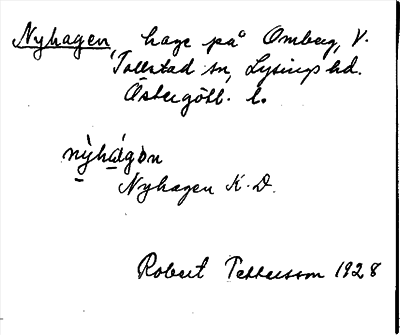 Nyhagen, hage på Omberg, V.
Tollstad sn, Lysings hd.
Östergötl. l.
nỳhágon
Nyhagen K. D.
Robert Pettersson 1928